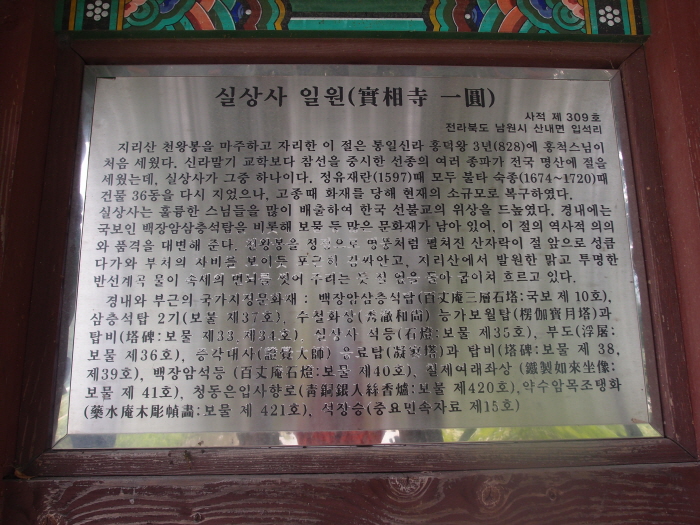 실상사 일원(實相寺 一圓)
사적 제 309호
전라북도 남원시 산내면 입석리
지리산 천왕봉을 마주하고 자리한 이 절은 통일신라 흥덕왕 3년(828)에 홍척스님이
처음 세웠다. 신라말기 교학보다 참선을 중시한 선종의 여러 종파가 전국 명산에 절을
세웠는데, 실상사가 그중 하나이다. 정유재란(1597)때 모두 불타 숙종(1674~1720)때
건물 36동을 다시 지었으나, 고종때 화재를 당해 현재의 소규모로 복구하였다.
실상사는 훌륭한 스님들을 많이 배출하여 한국 선불교의 위상을 드높였다. 경내에는
국보인 백장암삼층석탑을 비롯해 보물 등 많은 문화재가 남아 있어, 이 절의 역사적 의의
와 품격을 대변해 준다. 천왕봉을 정점으로 병풍처럼 펼쳐진 산자락이 절 앞으로 성큼
다가와 부처의 자비를 보이듯 포근히 감싸안고, 지리산에서 발원한 맑고 투명한
반선계곡 물이 속세의 번뇌를 씻어 주려는 듯 쉼 없을 돌아 굽이쳐 흐르고 있다.
경내와 부근의 국가지정문화재 : 백장암삼층석탑(百丈庵三層石塔:국보 제 10호),
삼층석탑 2기(보물 제37호), 수철화상(秀澈和尙) 능가보월탑(楞伽寶月塔)과
탑비(塔碑:보물 제33, 제34호), 실상사 석등(石燈:보물 제35호), 부도(浮屠:
보물 제36호), 증각대사(證覺大師) 응료탑(凝寥塔)과 탑비(塔碑:보물 제 38,
제39호), 백장암석등 (百丈庵石燈:보물 제40호), 철제여래좌상 (鐵製如來坐像:
보물 제 41호), 청동은입사향로(靑銅銀入絲香爐:보물 제420호),약수암목조탱화
(藥水庵木彫幀畵:보물 제 421호), 석장승(중요민속자료 제15호)